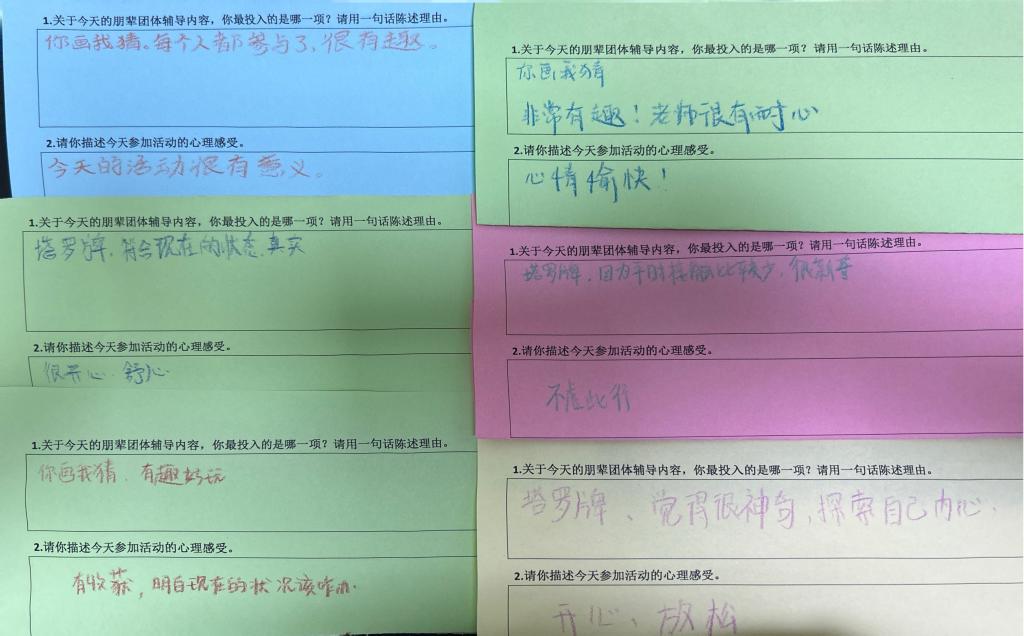 1.关于今天的朋辈团体辅导内容，你最投入的是哪一项？请用一句话陈述理由。
你画我猜。每个人都参与了，很有趣。
2.请你描述今天参加活动的心理感受。
今天的活动很有意义。
1.关于今天的朋辈团体辅导内容，你最投入的是哪一项？请用一句话陈述理由。
你画我猜
非常有趣！老师很有耐心
2.请你描述今天参加活动的心理感受。
心情愉快！
1.关于今天的朋辈团体辅导内容，你最投入的是哪一项？请用一句话陈述理由。
塔罗牌，符合现在的状态，真实
2.请你描述今天参加活动的心理感受。
很开心、舒心
1.关于今天的朋辈团体辅导内容，你最投入的是哪一项？请用一句话陈述理由。
塔罗牌，因为平时接触比较少，很新奇
2.请你描述今天参加活动的心理感受。
不虚此行
1.关于今天的朋辈团体辅导内容，你最投入的是哪一项？请用一句话陈述理由。
你画我猜，有趣好玩
2.请你描述今天参加活动的心理感受。
有收获，明白现在的状况该咋办.
1.关于今天的朋辈团体辅导内容，你最投入的是哪一项？请用一句话陈述理由。
塔罗牌、觉得很神奇，探索自己内心.
2.请你描述今天参加活动的心理感受。
开心、放松